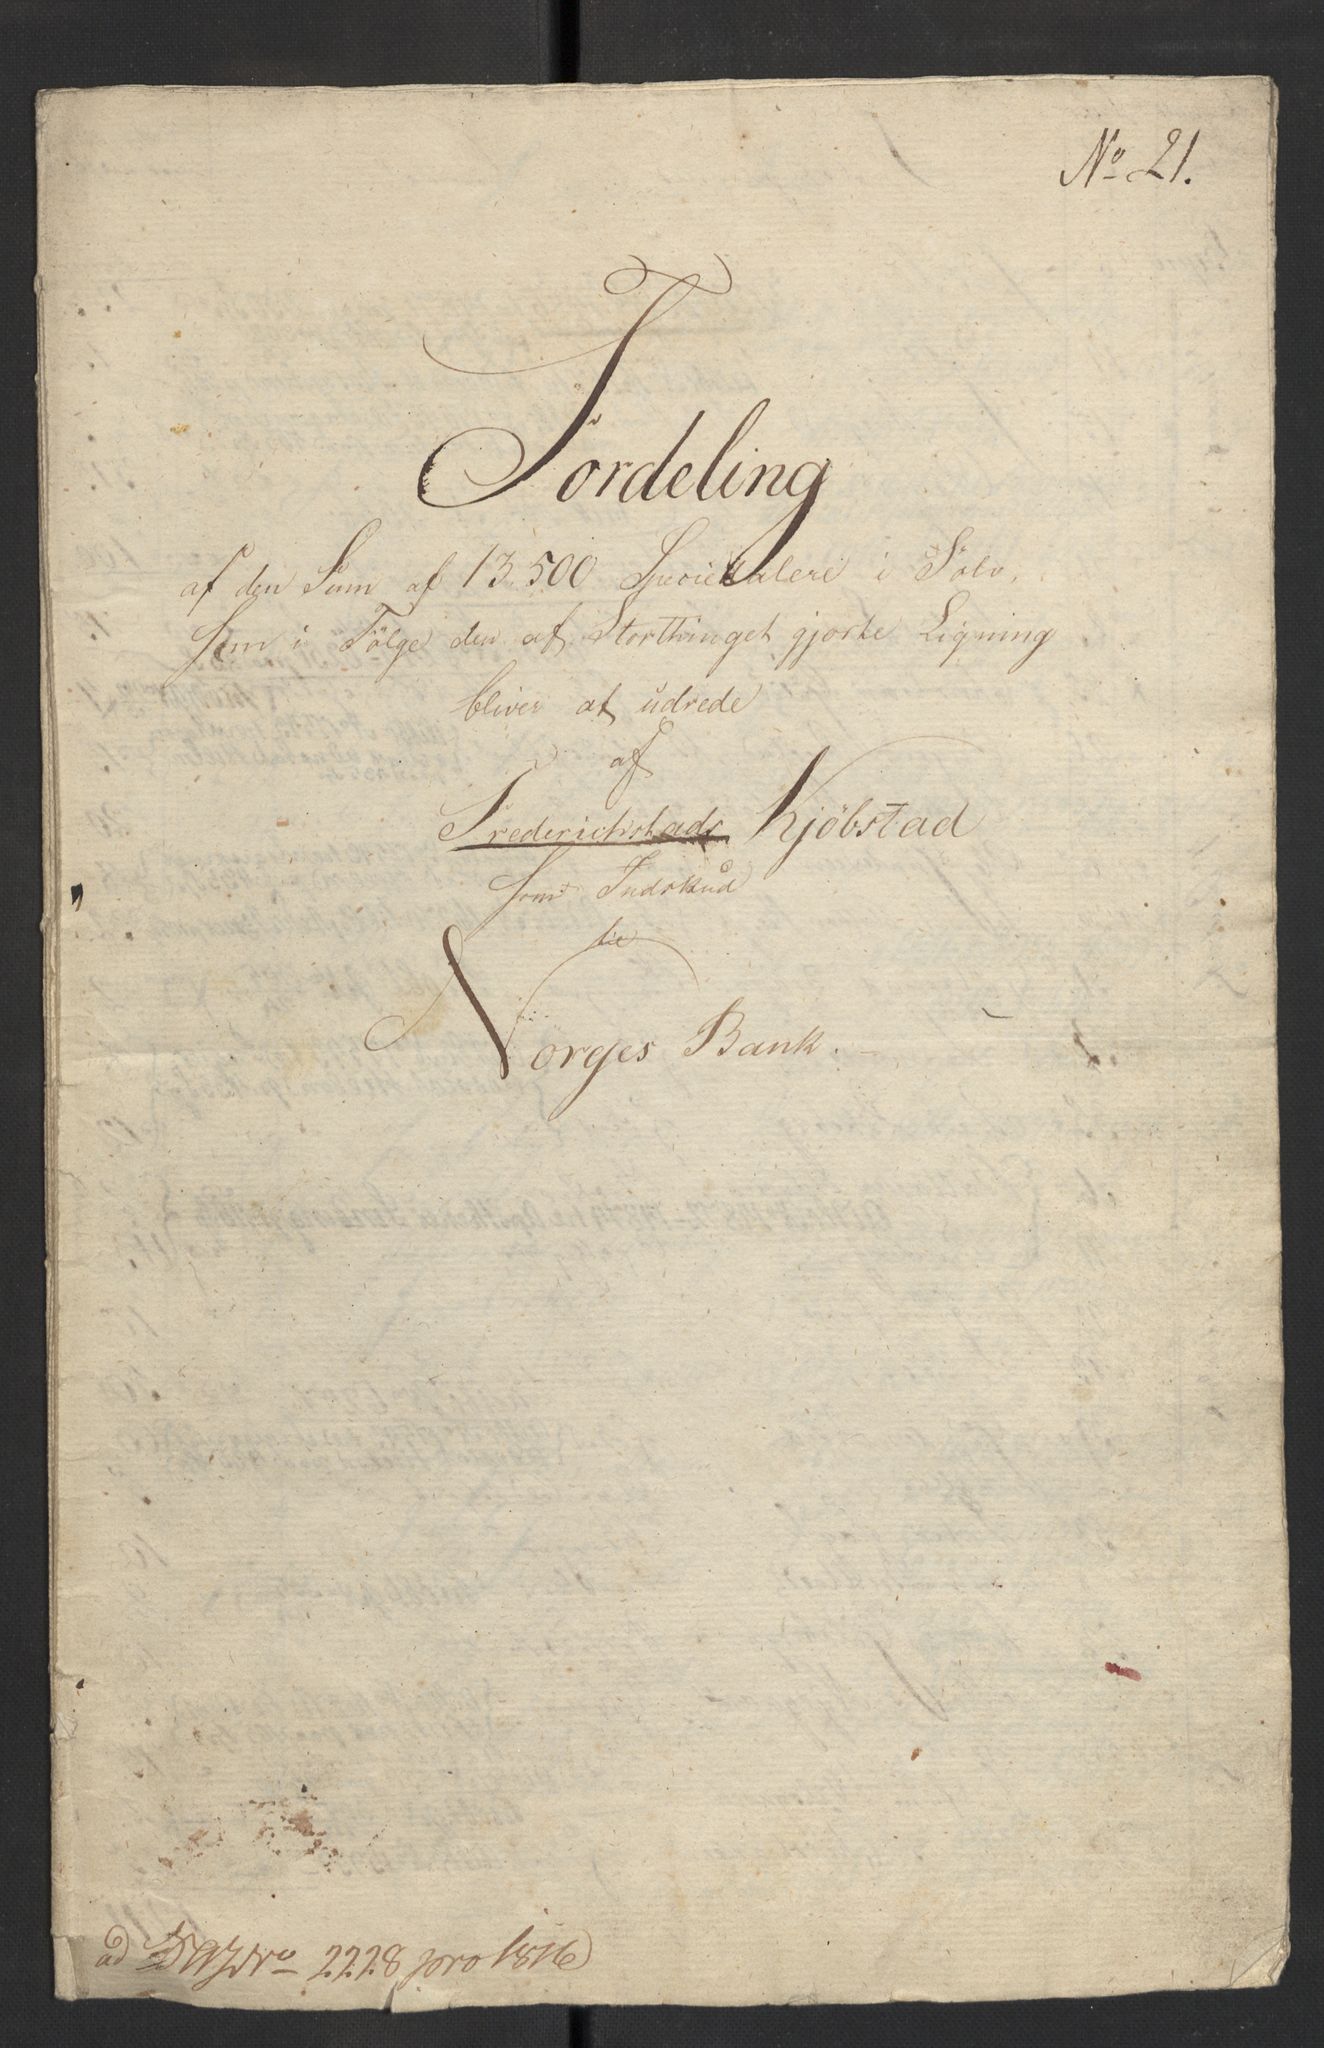 No 21.
Fordeling
af den Sum af 13.500 Speciedalere i Sölv,
som i Fölge den af Storthinget gjorte Ligning
bliver at udrede
af
Frederichstads Kjöbstad
som Indskud
til
Norges Bank.
ad No 2228 pro 1816